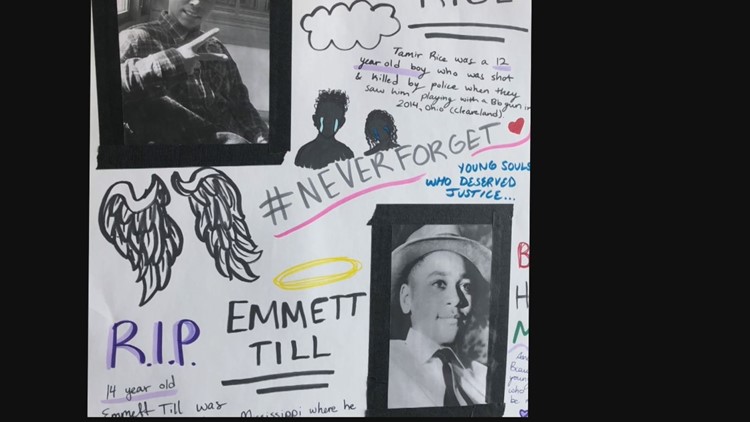 RICE
Tamir Rice was a 12
year old boy who was shot
& killed by police when they
saw him playing with a Bb gun in
2014, Ohio (Cleaveland)
#NEVERFORGET
YOUNG SOULS
WHO DESERVED
JUSTICE...
EMMETT
TILL
R.I.P.
14 year old
Emmett Till was
Mississippi where he
B
H
M